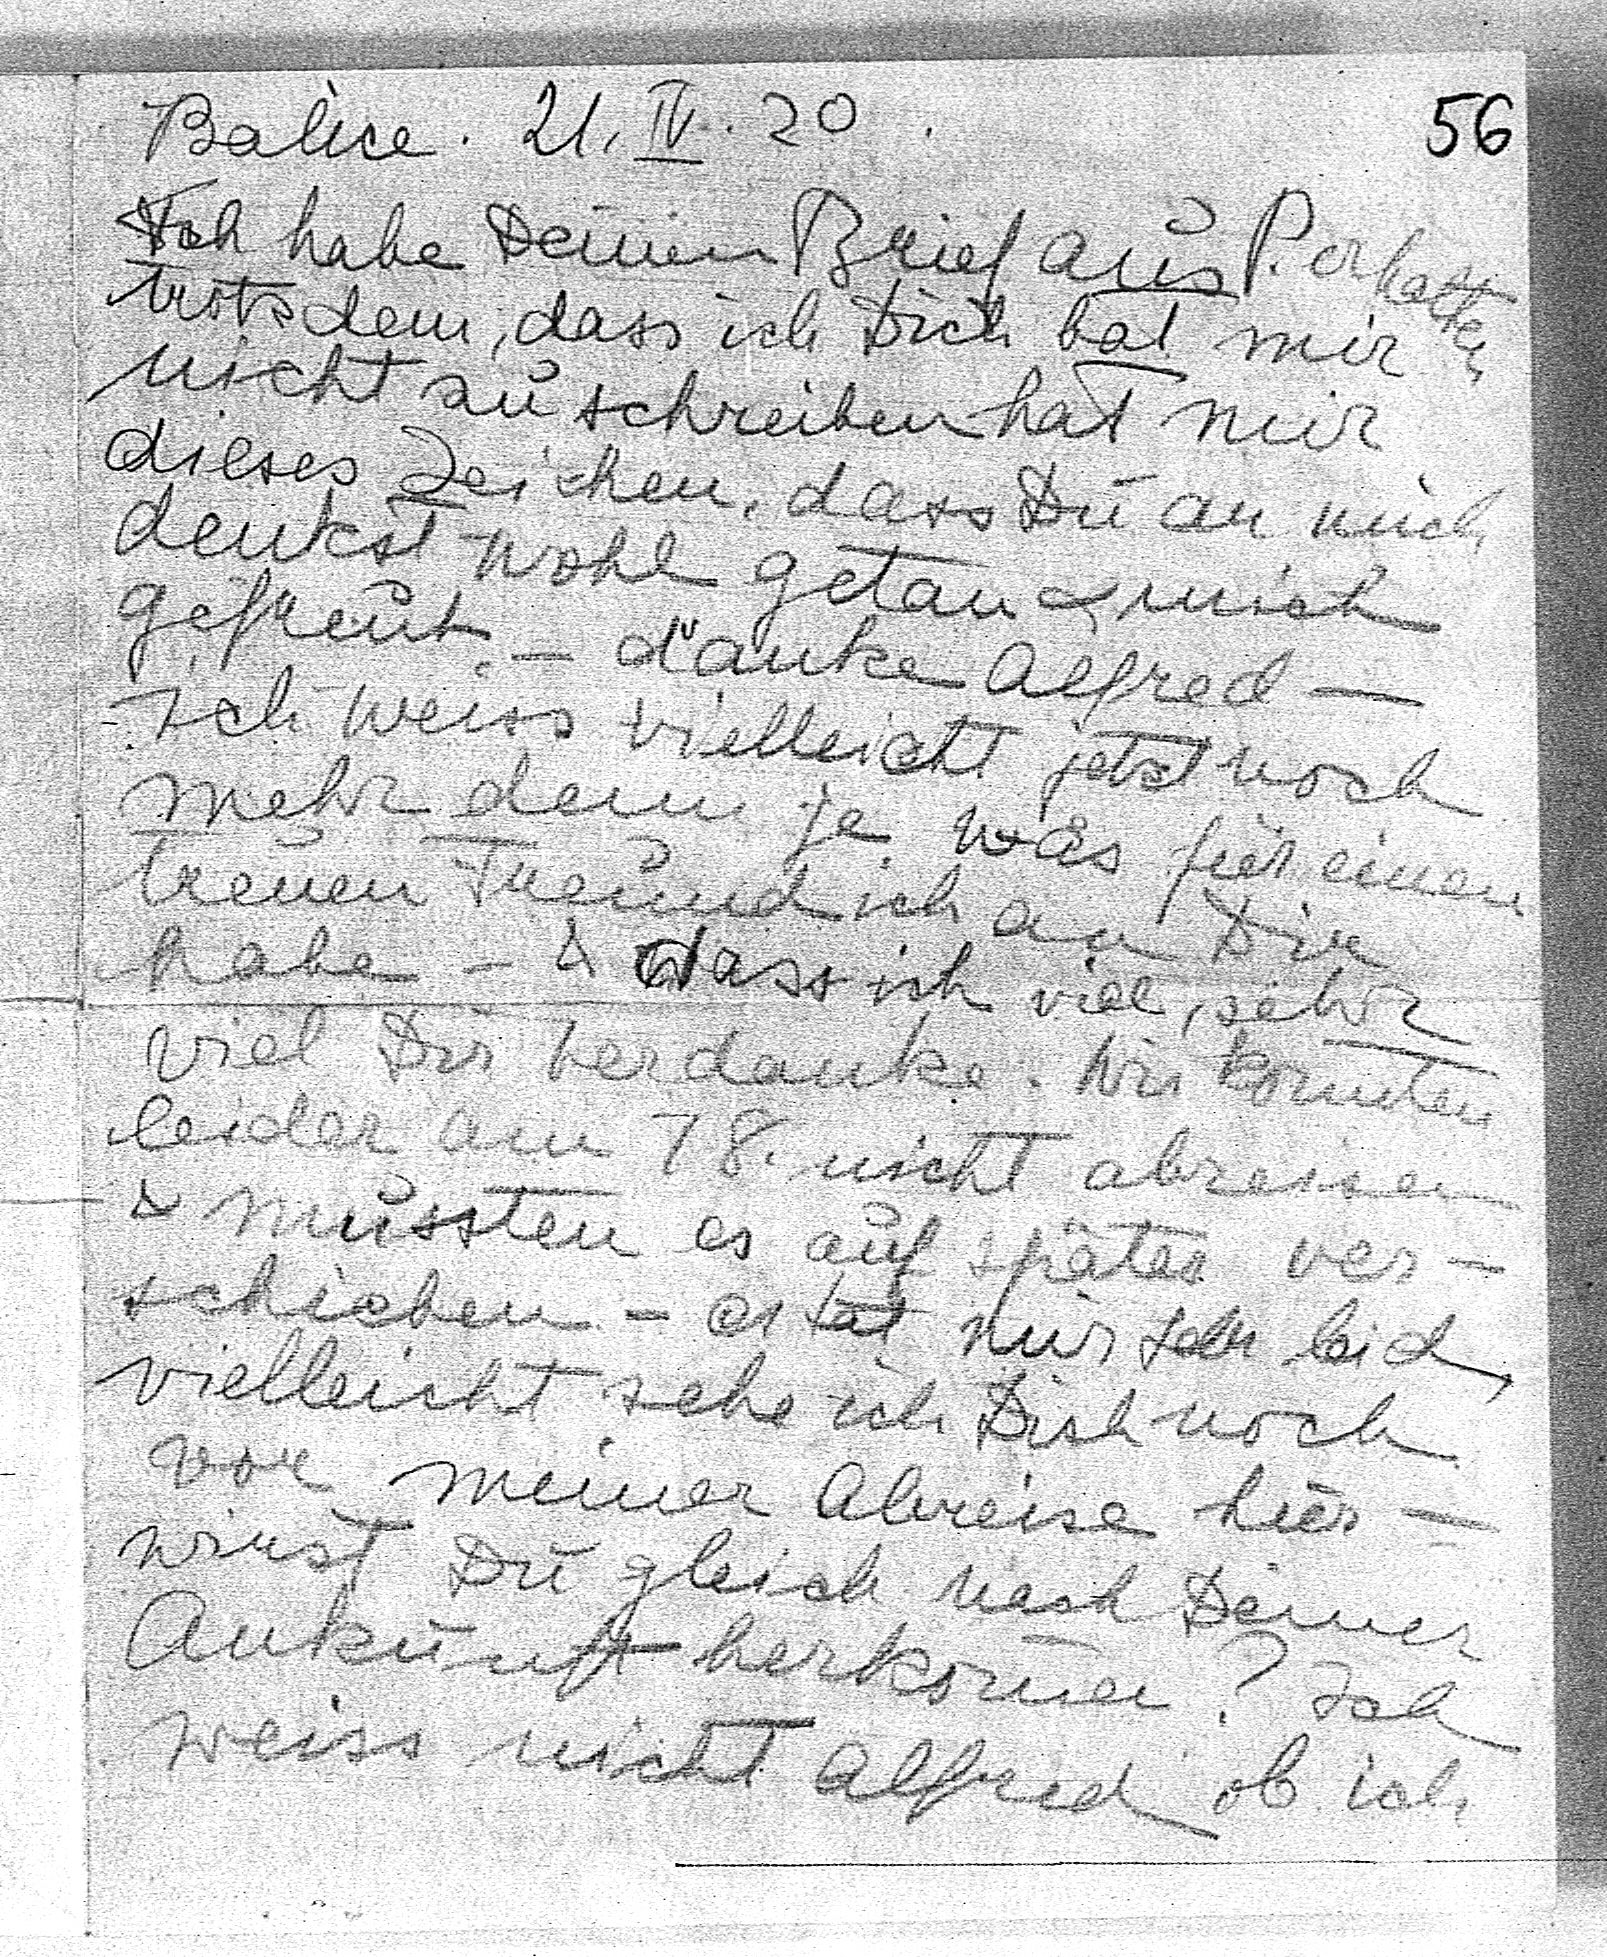 Balice. 21. IV. 20.
56
Ich habe Deinen Brief aus P. erhalten
trotzdem, dass ich Dich bat mir
nicht zu schreiben hat mir
dieses Zeichen, dass Du an mich
denkst wohl getan & mich
gefreut. – danke Alfred –
ich weiss vielleicht jetzt noch
mehr denn je was für einen
treuen Freund ich an Dir
habe – & dass ich viel, sehr
viel Dir verdanke. Wir konnten
leider am 18. nicht abreisen
& mussten es auf später ver-
schieben – es tat mir sehr leid,
vielleicht sehe ich Dich noch
vor meiner Abreise hier –
wirst Du gleich nach Deiner
Ankunft herkom̄en? Ich
weiss nicht Alfred ob ich